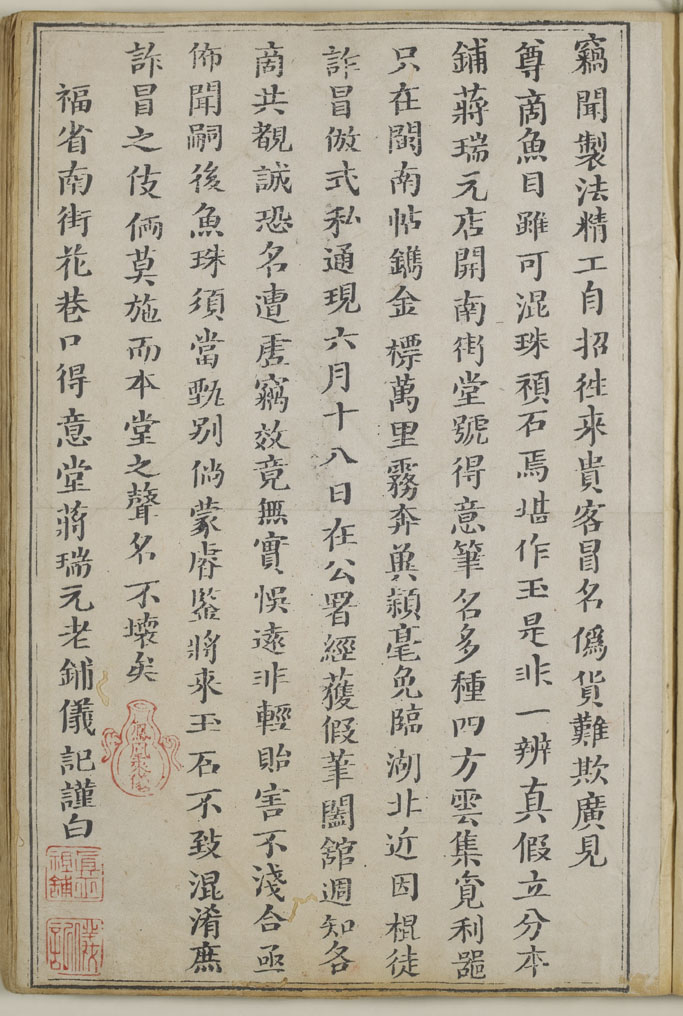 竊聞製法精工自招徃來貴客冒名僞貨難欺廣見
尊啇魚目雖可混珠碩石焉堪作玉是非一辨真假立分本
鋪蔣瑞元店開南街堂號得意筆名多種四方雲集覓利噐
只在閩南帖鐫金標萬里霧奔奠潁毫免臨湖北近因棍徒
詐冒倣式私通現六月十八日在公署經獲假筆闔舘週知各
啇共覩誠恐名遭虗竊效竟無實悞遠非輕貽害不淺合亟
佈聞嗣後魚珠須當甄别倘蒙睿鉴將來玉石不致混淆庶
詐冒之伎倆莫施而本堂之聲名不壊矣
福省南街花巷口得意堂蔣瑞元老鋪儀記謹白